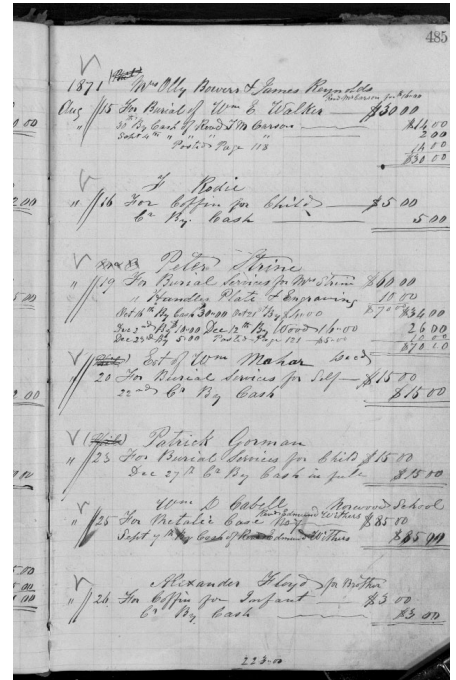 485
1871 Mrs Olly Bowers & James Reynolds
Aug 15 For Burial of Wm E. Walker $30.00
30th By Cash of Revd J M $14.00
Sept 4th " " " " 2.00
Posted Page 118 14.00
$30.00
F Rodie
" 16 For Coffin for Child $5.00
Cr By Cash 5.00
Peter Strine
" 19 For Burial Services for Mrs Strine $60.00
" Plate & Engraving 10.00
Nov 16th By Cash 30.00 Oct 21st By $4.00 $70.00 $34.00
Dec 2nd By 10.00 Dec 12th By Wood 16.00 26.00
Dec 23d By 5.00 Posted Page 121 10.00
Est of Wm Mahar
20 For Burial Services for Self $15.00
22nd Cr By Cash $15.00
Patrick Gorman
" 23 For Burial Services for Child $15.00
Dec 27th Cr By Cash in full $15.00
Wm D Cabell Norwood School
Revd Edmund Withers
" 25 For Metalic Case Boy $85.00
Sept 7th By Cash of Edmund Withers $85.00
Alexander Floyd for Brother
" 26 For Coffin for Infant $3.00
Cr By Cash $3.00
223.00